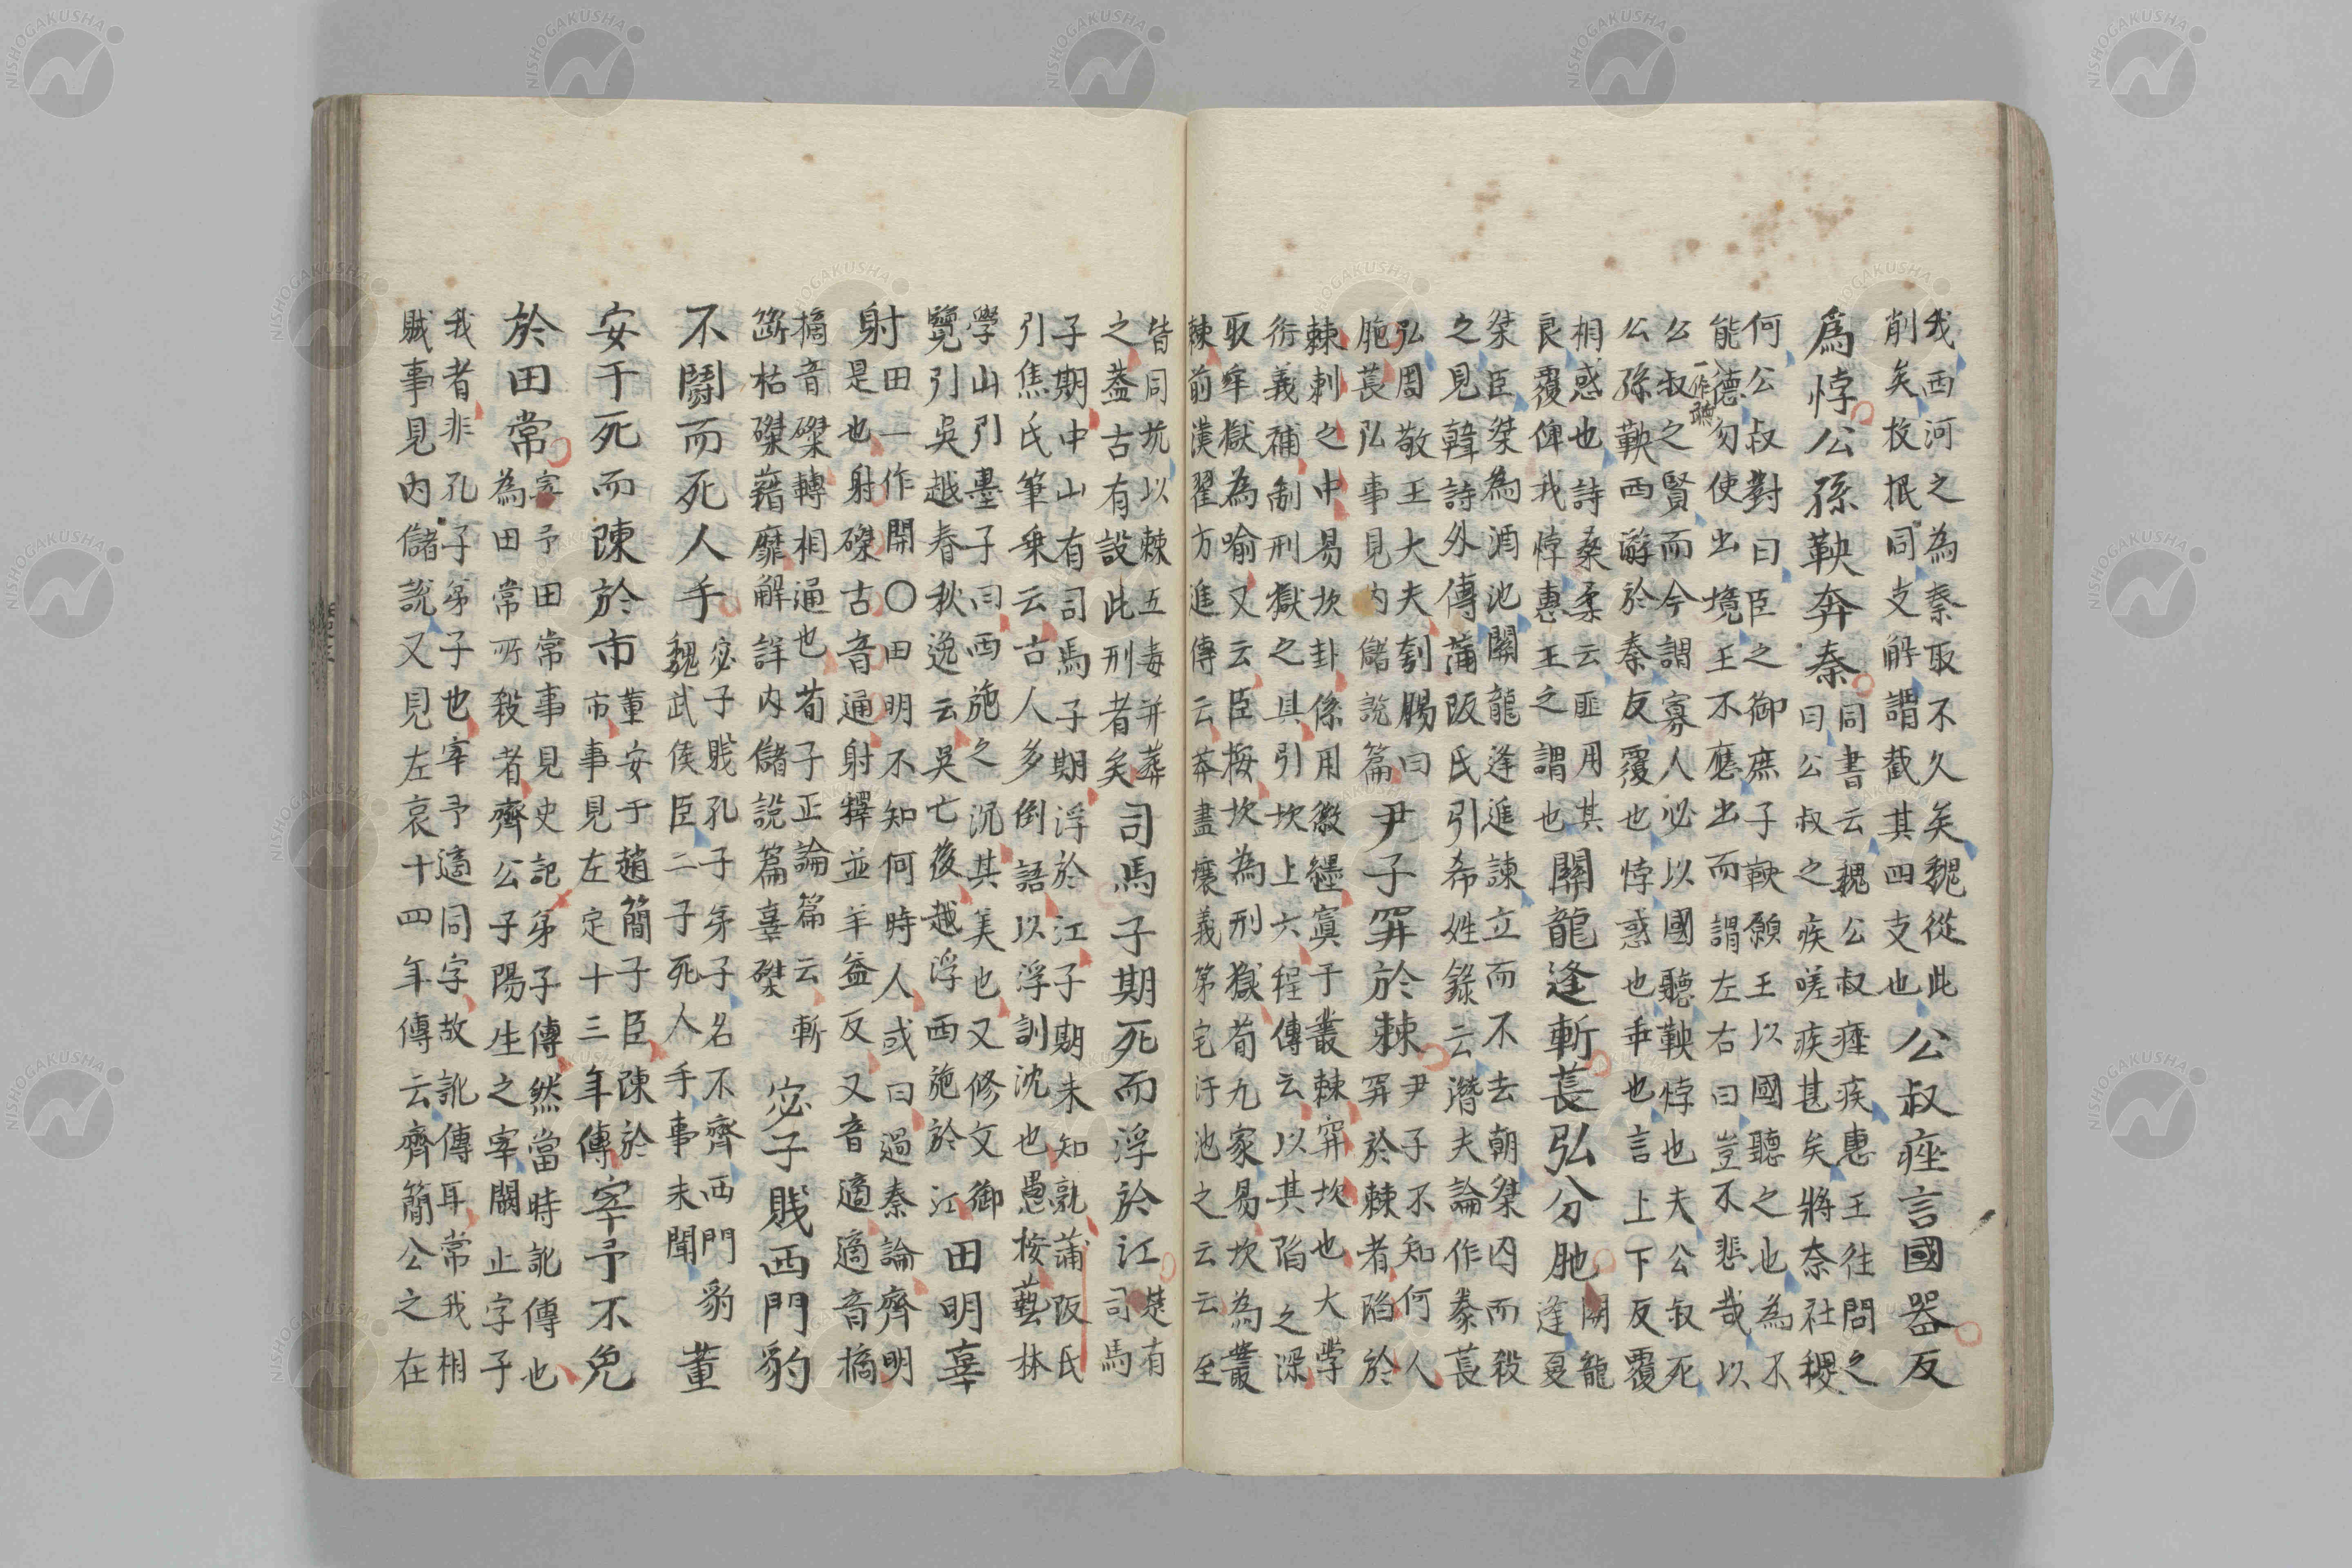 我西河之為秦取不久矣魏從此
削矣枚抿同支解謂截其四支也
公叔痤言國器反
為悖公孫鞅奔秦
同書云魏公叔痤疾惠王往問之
曰公叔之疾嗟疾甚矣將奈社稷
何公叔對曰臣之御庶子鞅願王以國聽之也為不
能德勿使出境王不應出而謂左右曰豈不悲哉以
一作聽
公叔之賢而今謂寡人必以國聽鞅悖也夫公叔死
公孫鞅西辭於秦反覆也悖惑也乖也言上下反覆
相惑也詩桑柔云匪用其
良覆俾我悖惠王之謂也
關龍逢斬萇弘分胣
關龍
逢夏
桀臣桀為酒池關龍逢進諫立而不去朝桀囚而殺
之見韓詩外傳蒲阪氏引希姓錄云潛夫論作豢萇
弘周敬王大夫刳腸曰
胣萇弘事見內儲說篇
尹子穽於棘
尹子不知何人
穽於棘者陷於
棘刺之中易坎卦係用徽纆寘于叢棘穽坎也大學
衍義補制刑獄之具引坎上六程傳云以其陷之深
取牢獄為喻又云臣按坎為刑獄荀九家易坎為叢
棘前漢翟方進傳云莽盡壞義第宅汙池之云云至
皆同坑以棘五毒并葬
之蓋古有設此刑者矣
司馬子期死而浮於江
楚有
司馬
子期中山有司馬子期浮於江子期未知孰蒲阪氏
引焦氏筆乗云古人多倒語以浮訓沈也愚按藝林
學山引墨子曰西施之沉其美也又修文御
覽引吳越春秋逸云吳亡後越浮西施於江
田明辜
射
田一作開〇田明不知何時人或曰過秦論齊明
是也射磔古音通射釋並羊益反又音適適音摘
摘音磔轉相通也荀子正論篇云斬
斷枯磔藉靡解詳內儲說篇辜磔
宓子賤西門豹
不鬪而死人手
宓子賤孔子弟子名不齊西門豹
魏武侯臣二子死人手事未聞
董
安于死而陳於市
董安于趙簡子臣陳於
市事見左定十三年傳
宰予不免
於田常
宰予田常事見史記弟子傳然當時訛傳也
為田常所殺者齊公子陽生之宰闞止字子
我者非孔子弟子也宰予適同字故訛傳耳常我相
賊事見內儲說又見左哀十四年傳云齊簡公之在